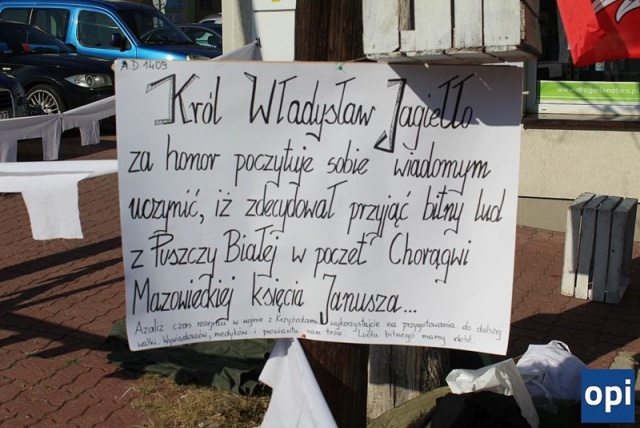 A.D. 1409
Król Władysław Jagiełło
za honor poczytuje sobie wiadomym
uczynić, iż zdecydował przyjąć bitny lud
z Puszczy Białej w poczet Chorągwi
Mazowieckiej księcia Janusza...
Azaliż czas rozejmu w wojnie z Krzyżakami wykorzystajcie na przygotowania do dalszej
walki. Wywiadowców, medyków i prowiantu nam trza. Ludu bitnego mamy dość.
www.drogerienatura.pl
opi